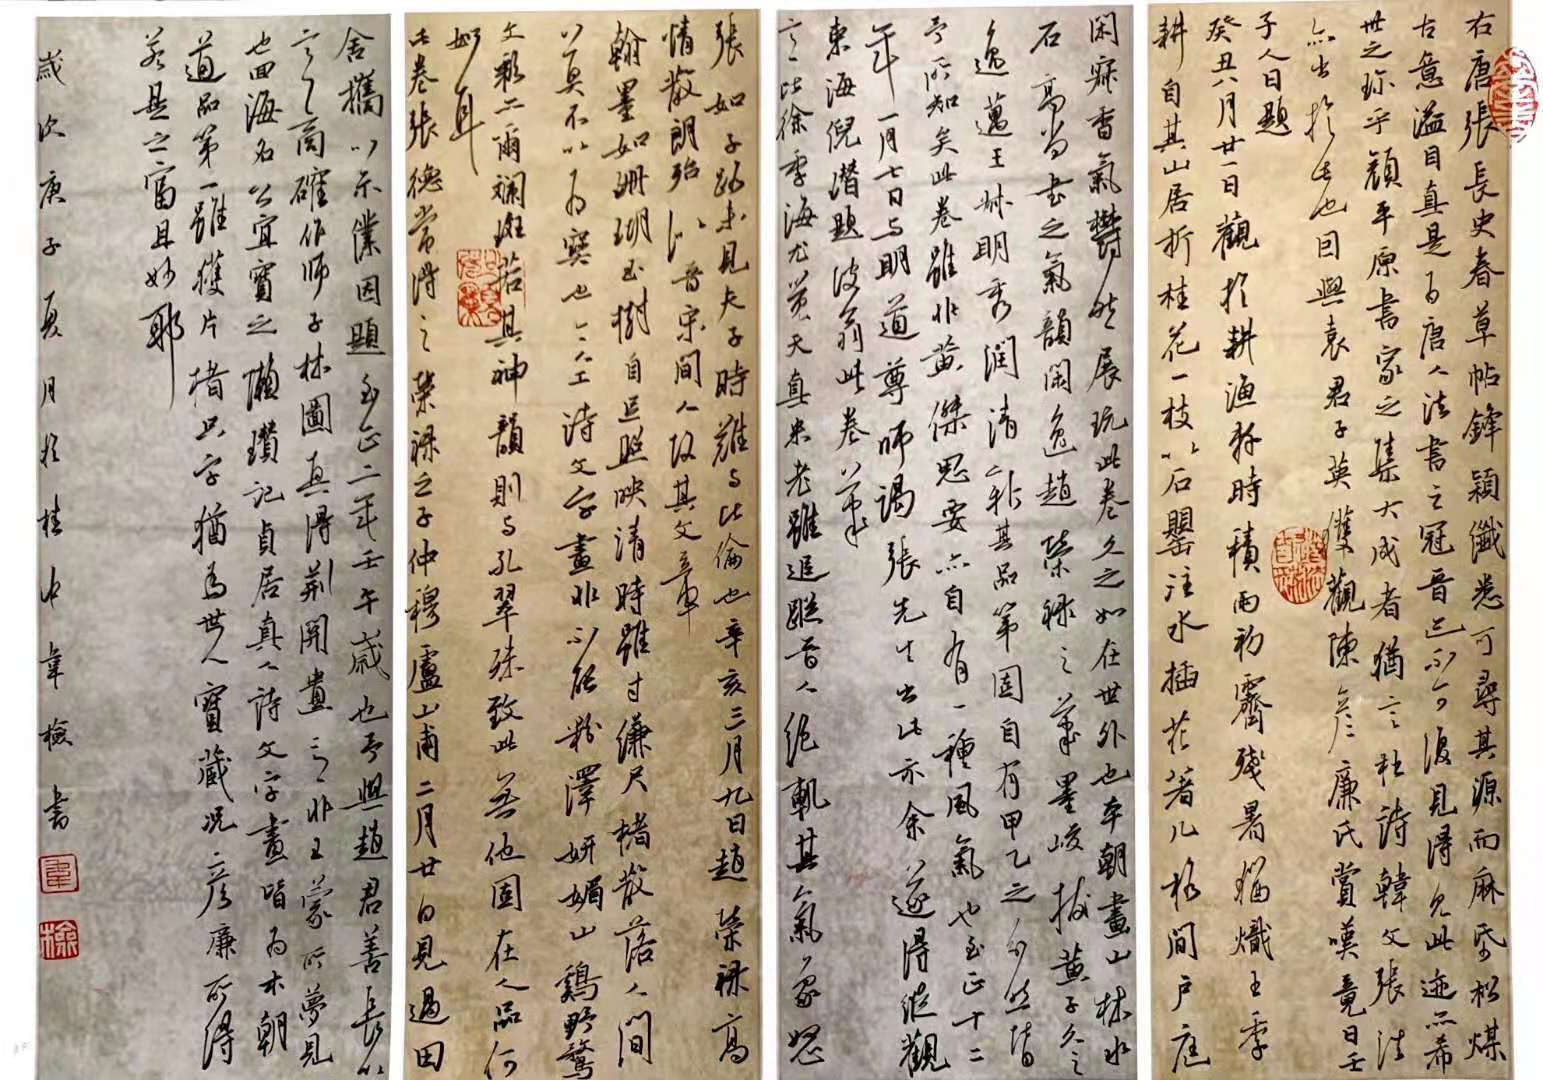 右唐張長史春草帖鋒穎纖悉可尋其源而麻帋松煤
古意溢目真是為唐人法書之冠晉已不可復見得見此迹亦希
世之珍乎顏平原書家之集大成者猶言杜詩韓文張法
亦出於此也因與袁君子英獲觀陳彦廉氏賞嘆竟日壬
子人日題
癸丑八月廿一日觀於耕漁軒時積雨初霽殘暑猶熾王季
耕自其山居折桂花一枝以石罌注水插花著几格間戶庭
閑寂香氣鬱然展玩此卷久之如在世外也本朝畫山林水
石高尚書之氣韻閑逸趙榮祿之筆墨峻拔黃子久之
逸邁王叔明秀潤清新其品第固自有甲乙之分然皆
予所知矣此卷雖非黃傑思要亦自有一種風氣也至正十二
年一月七日與明道尊師謁張先生出此示余遂得縱觀
東海倪瓚題
言比徐季海尤覺天真米老雖追蹤晉人絕軌其氣象怒
張如子路未見夫子時難與比倫也辛亥三月九日趙榮祿高
情散朗殆似晉宋間人故其文章
翰墨如珊瑚玉樹自足照映清時雖寸縑尺楮散落人間
莫不以為寶也工詩文字畫非不能粉澤妍媚山鷄野鶩
文彩亦爾斕斑若其神韻則與孔翠殊致此無他固在人品何
如耳
此卷張德常得之榮祿之子仲穆盧山甫二月廿白見過田
舍攜以示僕因題至正二年壬午歲也予與趙君善長以
意商確作師子林圖真得荊關遺意非王蒙所夢見
也四海名公宜寶之懶瓚記貞居真人詩文字畫皆為本朝
道品第一雖獲片楮只字猶為世人寶藏况彦廉所得
若是之富且妙耶
歲次庚子夏月於桂中韋檢書